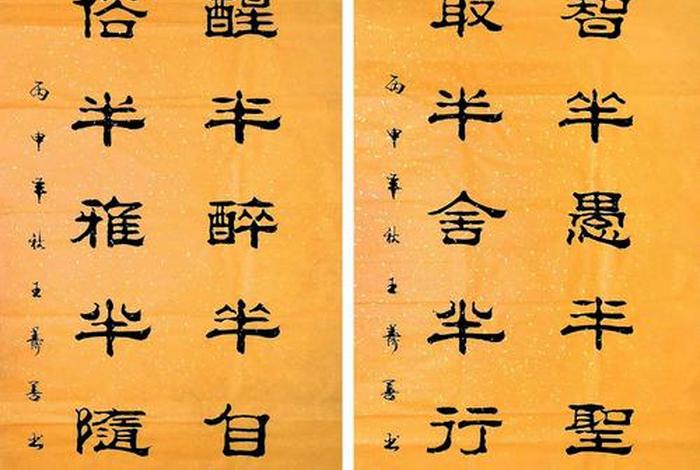 智半愚半聖
取半舍半行
丙申年秋王善书
醒半醉半自
俗半雅半隨
丙申年秋王善书